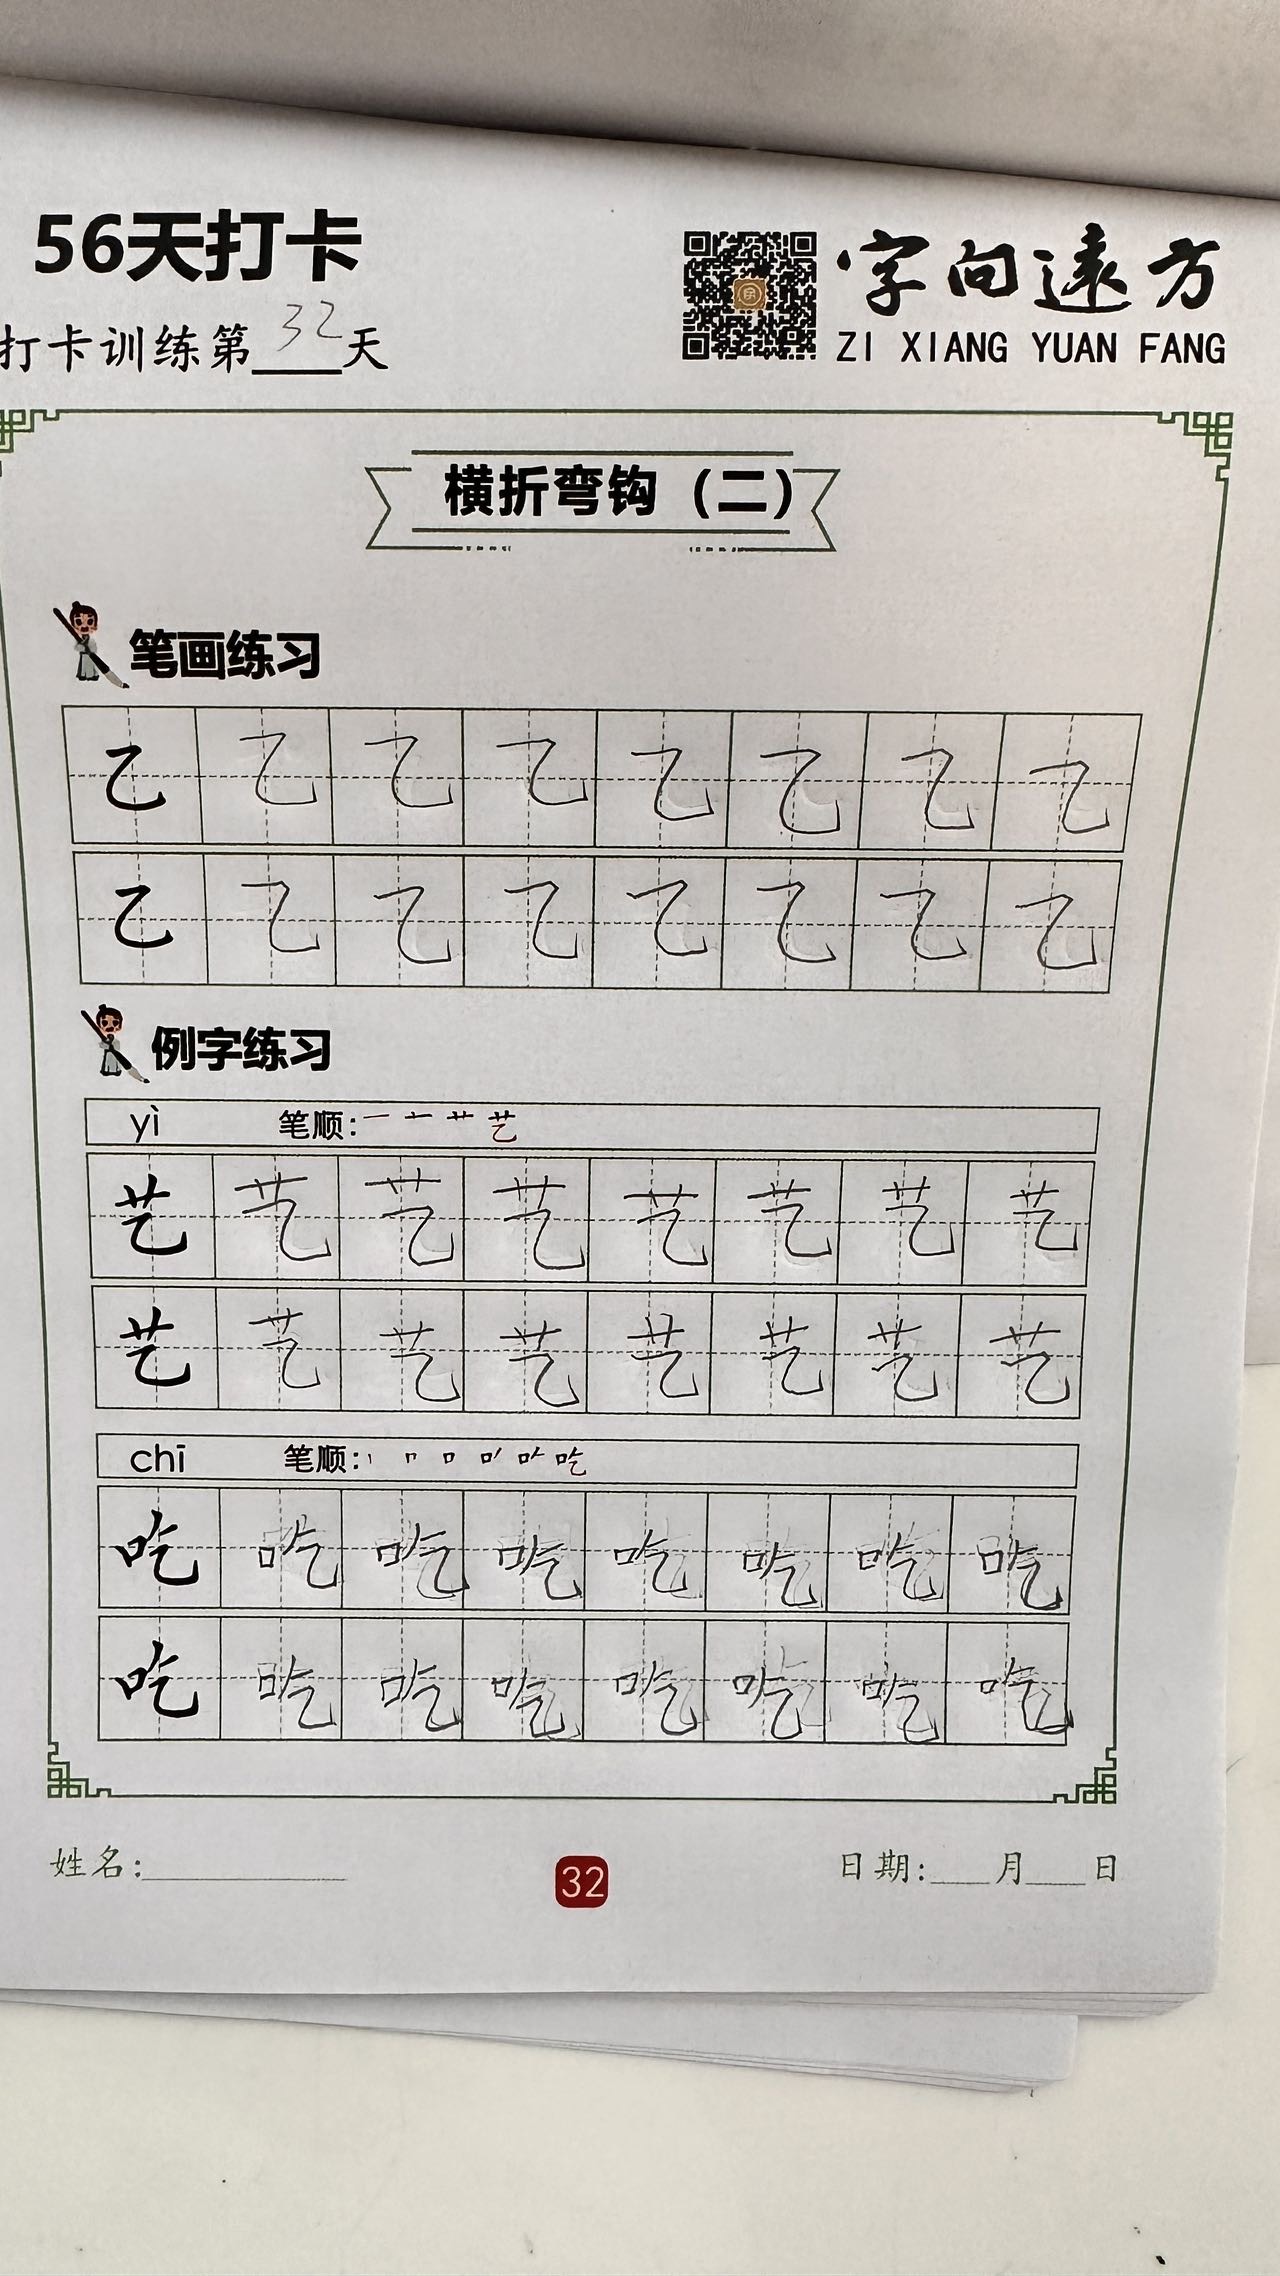 56天打卡
字向遠方
ZI XIANG YUAN FANG
打卡训练第32天
横折弯钩（二）
笔画练习
乙 乙 乙 乙 乙 乙 乙 乙
乙 乙 乙 乙 乙 乙 乙 乙
例字练习
yì 笔顺: 一 十 艹 艺
艺 艺 艺 艺 艺 艺 艺 艺
艺 艺 艺 艺 艺 艺 艺 艺
chī 笔顺:
吃 吃 吃 吃 吃 吃 吃 吃
吃 吃 吃 吃 吃 吃 吃 吃
姓名: 32 日期: 月 日